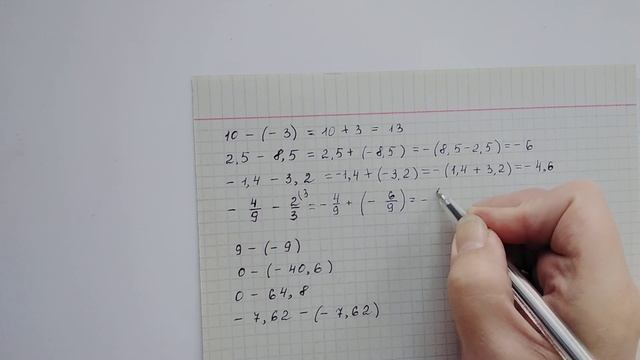 10 - (- 3) = 10 + 3 = 13
2,5 - 8,5 = 2,5 + (- 8,5) = - (8,5 - 2,5) = - 6
- 1,4 - 3,2 = - 1,4 + (- 3,2) = - (1,4 + 3,2) = - 4,6
- 4/9 - 2/3 (3 = - 4/9 + (- 6/9) = -
9 - (- 9)
0 - (- 40,6)
0 - 64,8
- 7,62 - (- 7,62)